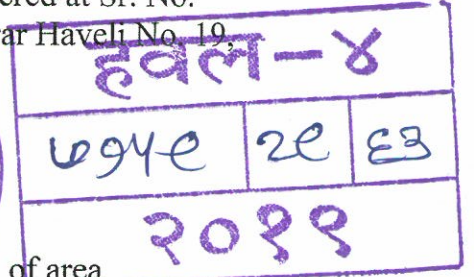 ered at Sr. No.
ar Haveli No. 19,
हवल-४
७१५९ २९ ६३
२०११
of area